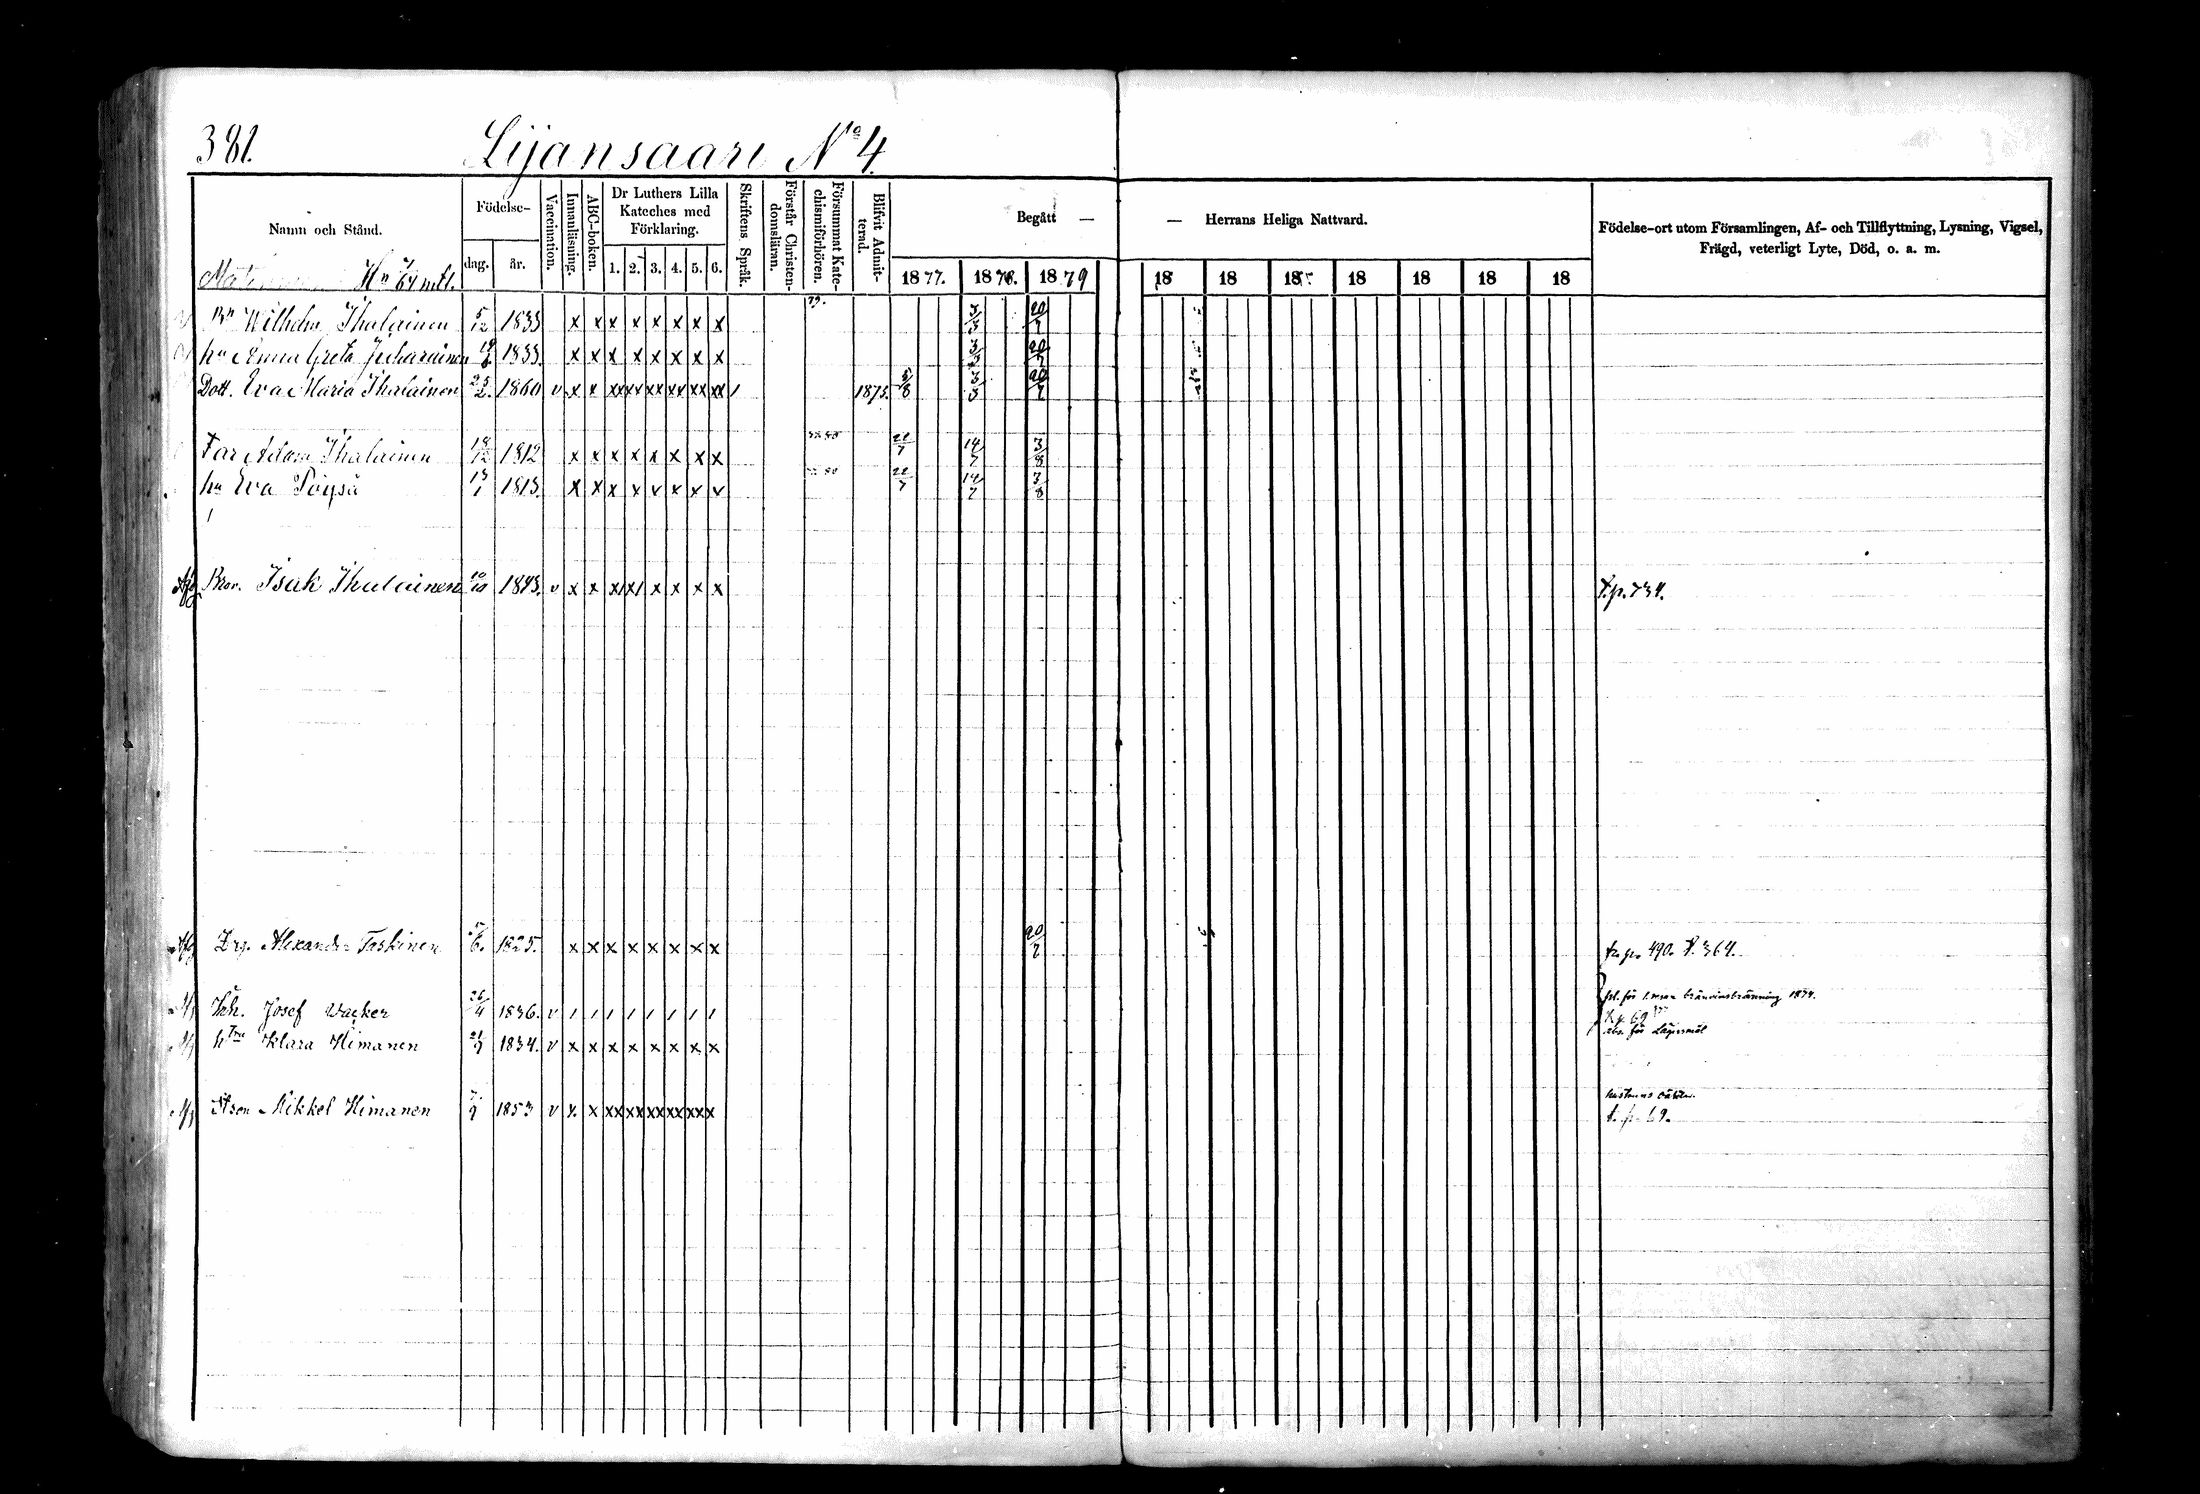 381.
Lijansaari No 4.
Namn och Stånd.
Födelse-
dag.
år.
Vaccination.
Innanläsning.
ABC-boken.
Dr Luthers Lilla
Kateches med
Förklaring.
1. 2. 3. 4. 5. 6.
Skriftens Språk.
Förstår Christen-
domsläran.
Försummat Kate-
chismiförhören.
Blifvit Admit-
terad.
Begått —
— Herrans Heliga Nattvard.
1877. 1878. 1879
18 18 18 18 18 18 18
Födelse-ort utom Församlingen, Af- och Tillflyttning, Lysning, Vigsel,
Frägd, veterligt Lyte, Död, o. a. m.
mtl.
Wilhelm Ihalainen 5/12 1833 x x x x x x x x 79. 3/3 20/7
hu Anna Greta 1833. x x x x x x x x 3/3 20/7
Dott. Eva Maria Ihalainen 25/2. 1860 v x x xx xx xx xx xx xx / 1875. 5/8 3/3 20/7
Far Adam Ihalainen 18/12 1812 x x x x x x x x 22/7 14/7 3/8
hu Eva Pöysä 13/1 1813. x x x x x x x x 22/7 14/7 3/8
Afg Bror. Isak Ihalainen 10/10 1843. v x x x/ x/ x x x x t.p. 734.
Afg Drg. Alexander Taskinen 1825. x x x x x x x x 20/7 fr. p. 490. t. 364.
Inh. Josef Wacker 26/4 1836. v / / / / / / / /
brännvinsbränning 1874.
69
hTru Klara Himanen 21/9 1834. v x x x x x x x x abs. för Lägersmål
hustruns
Son Mikkel Himanen 1853 v x x xx xx xx xx xx x t. p. 69.